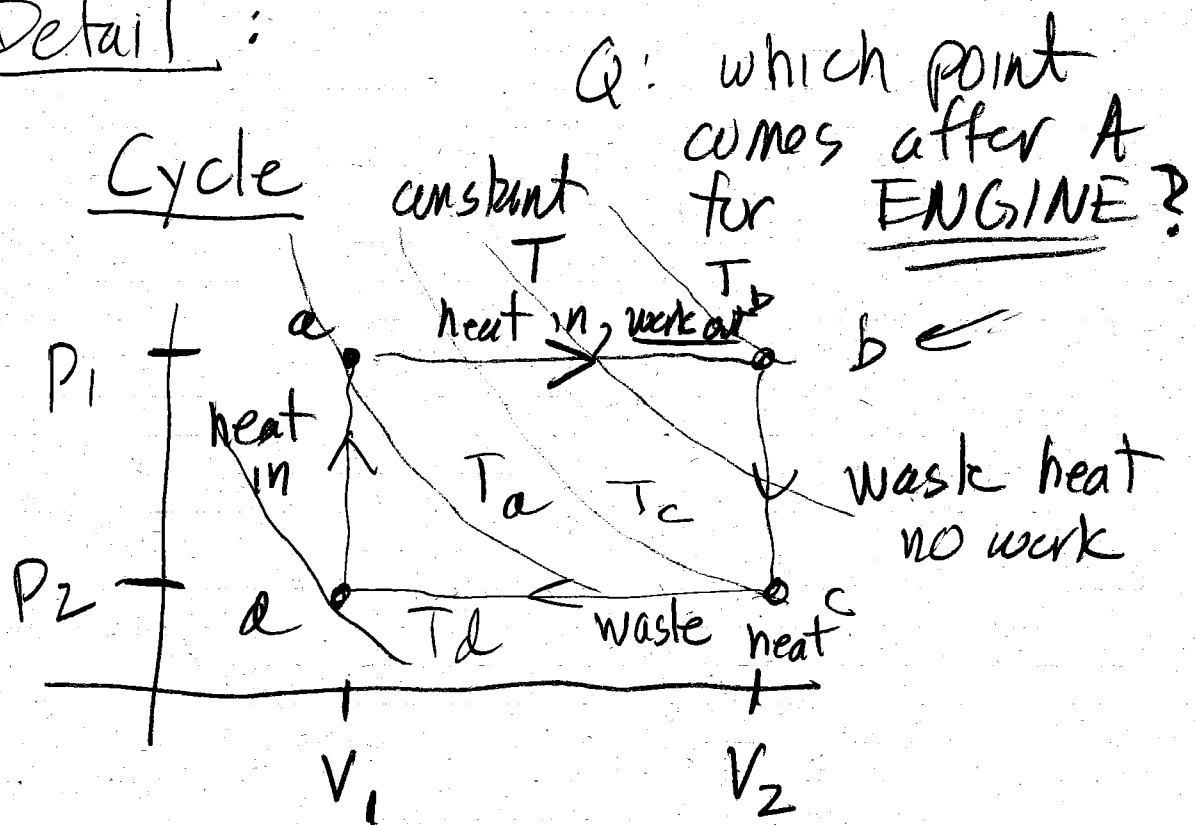 Detail :
Q: which point
comes after A
for ENGINE?
Cycle
constant
T
T b
a
heat in, work out
b
P1
heat
in
Ta
Tc
waste heat
no work
P2
d
Td
waste
heat
c
V1
V2